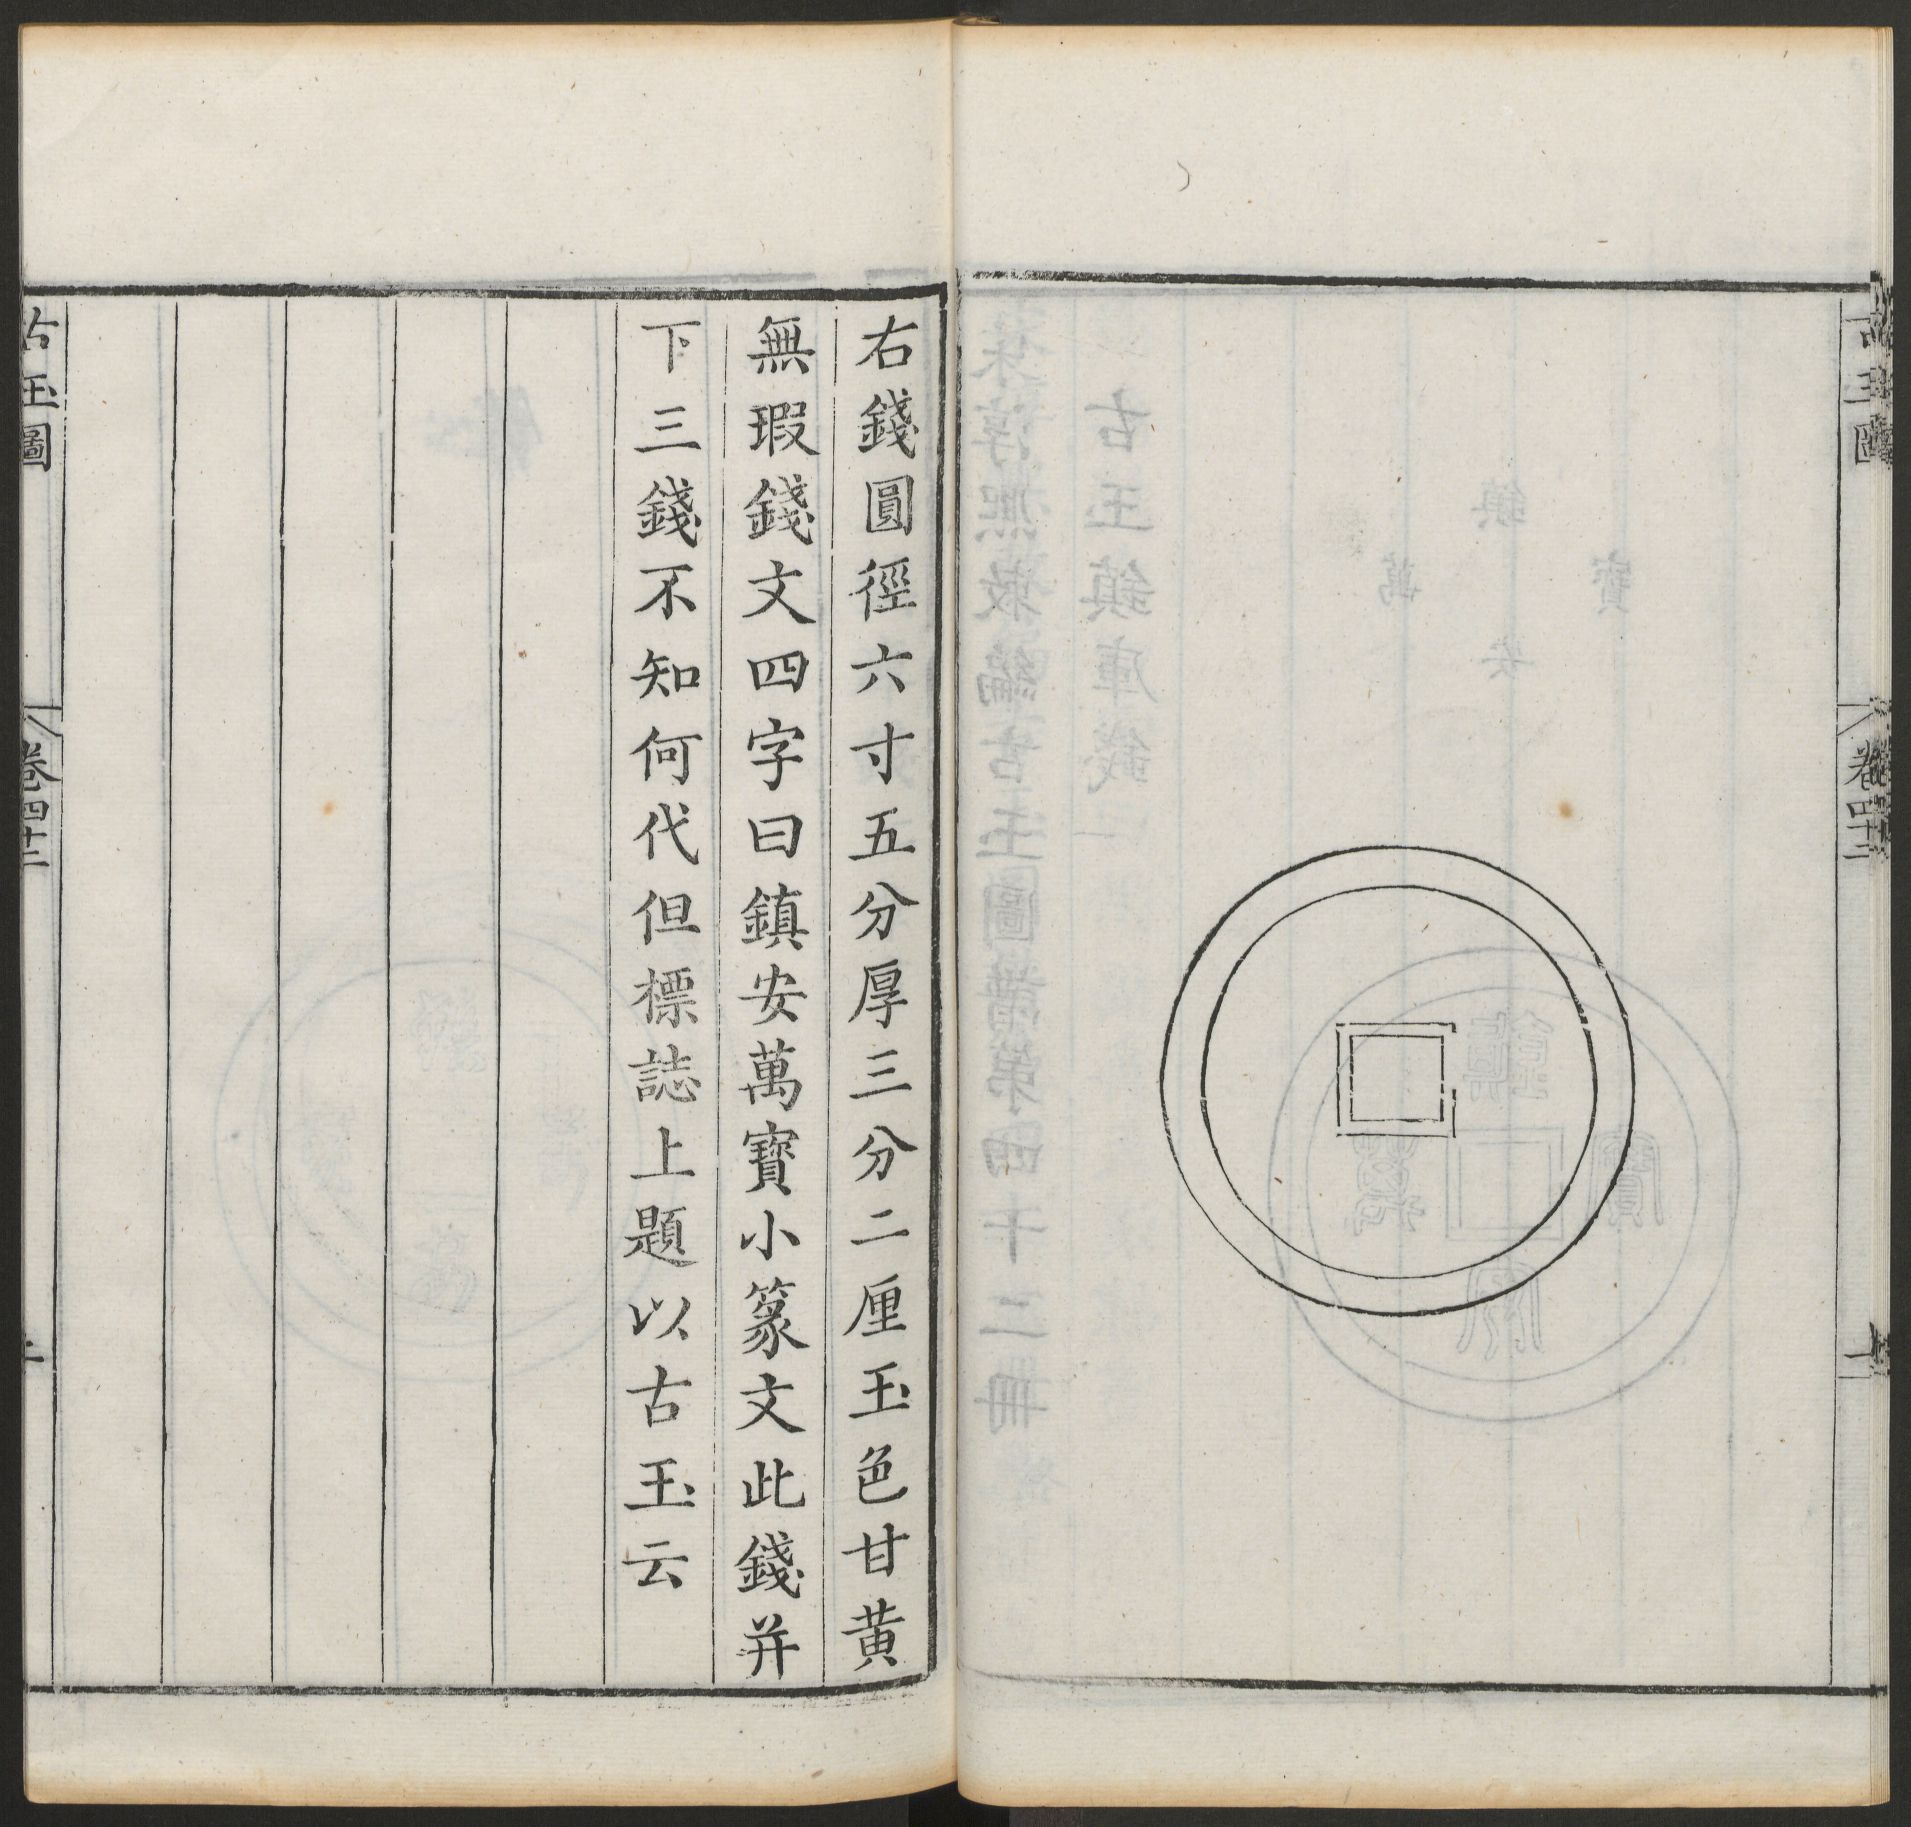 古玉圖
卷四十二
一
右錢圓徑六寸五分厚三分二厘玉色甘黄
無瑕錢文四字曰鎮安萬寳小篆文此錢并
下三錢不知何代但標誌上題以古玉云
古玉圖
卷四十二